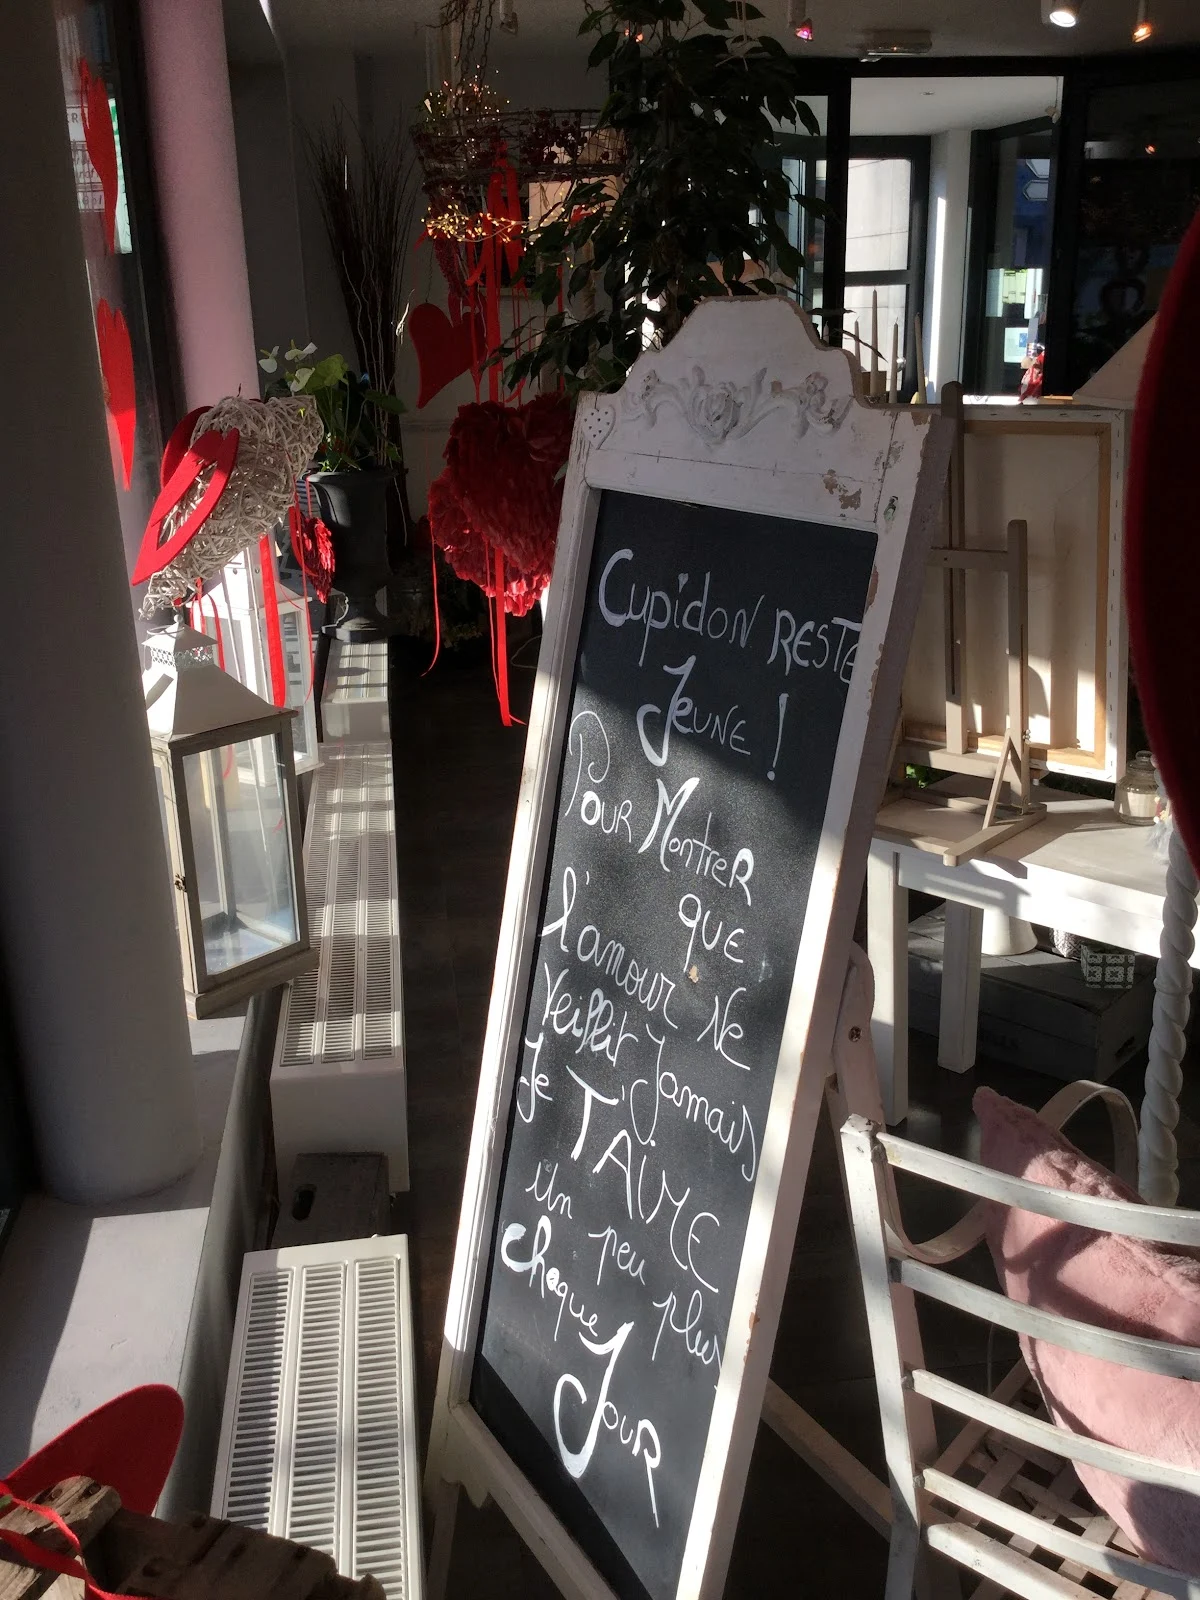 Cupidon RESTE
JEUNE !
POUR MontreR
QUE
l'amour NE
Veillit Jamais
Je T'AIME
un peu plus
chaque
JouR